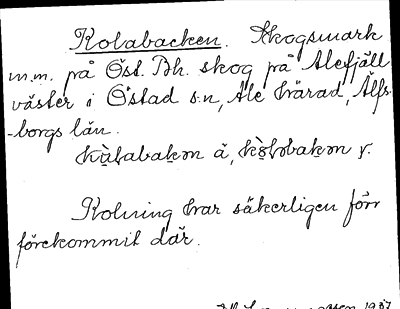 Kolabacken. Skogsmark
m.m. på Öst. Bh. skog på Alefjäll
väster i Östad s:n, Ale härad, Älfs-
borgs län.
Kolning har säkerligen förr
förekommit där.
1937